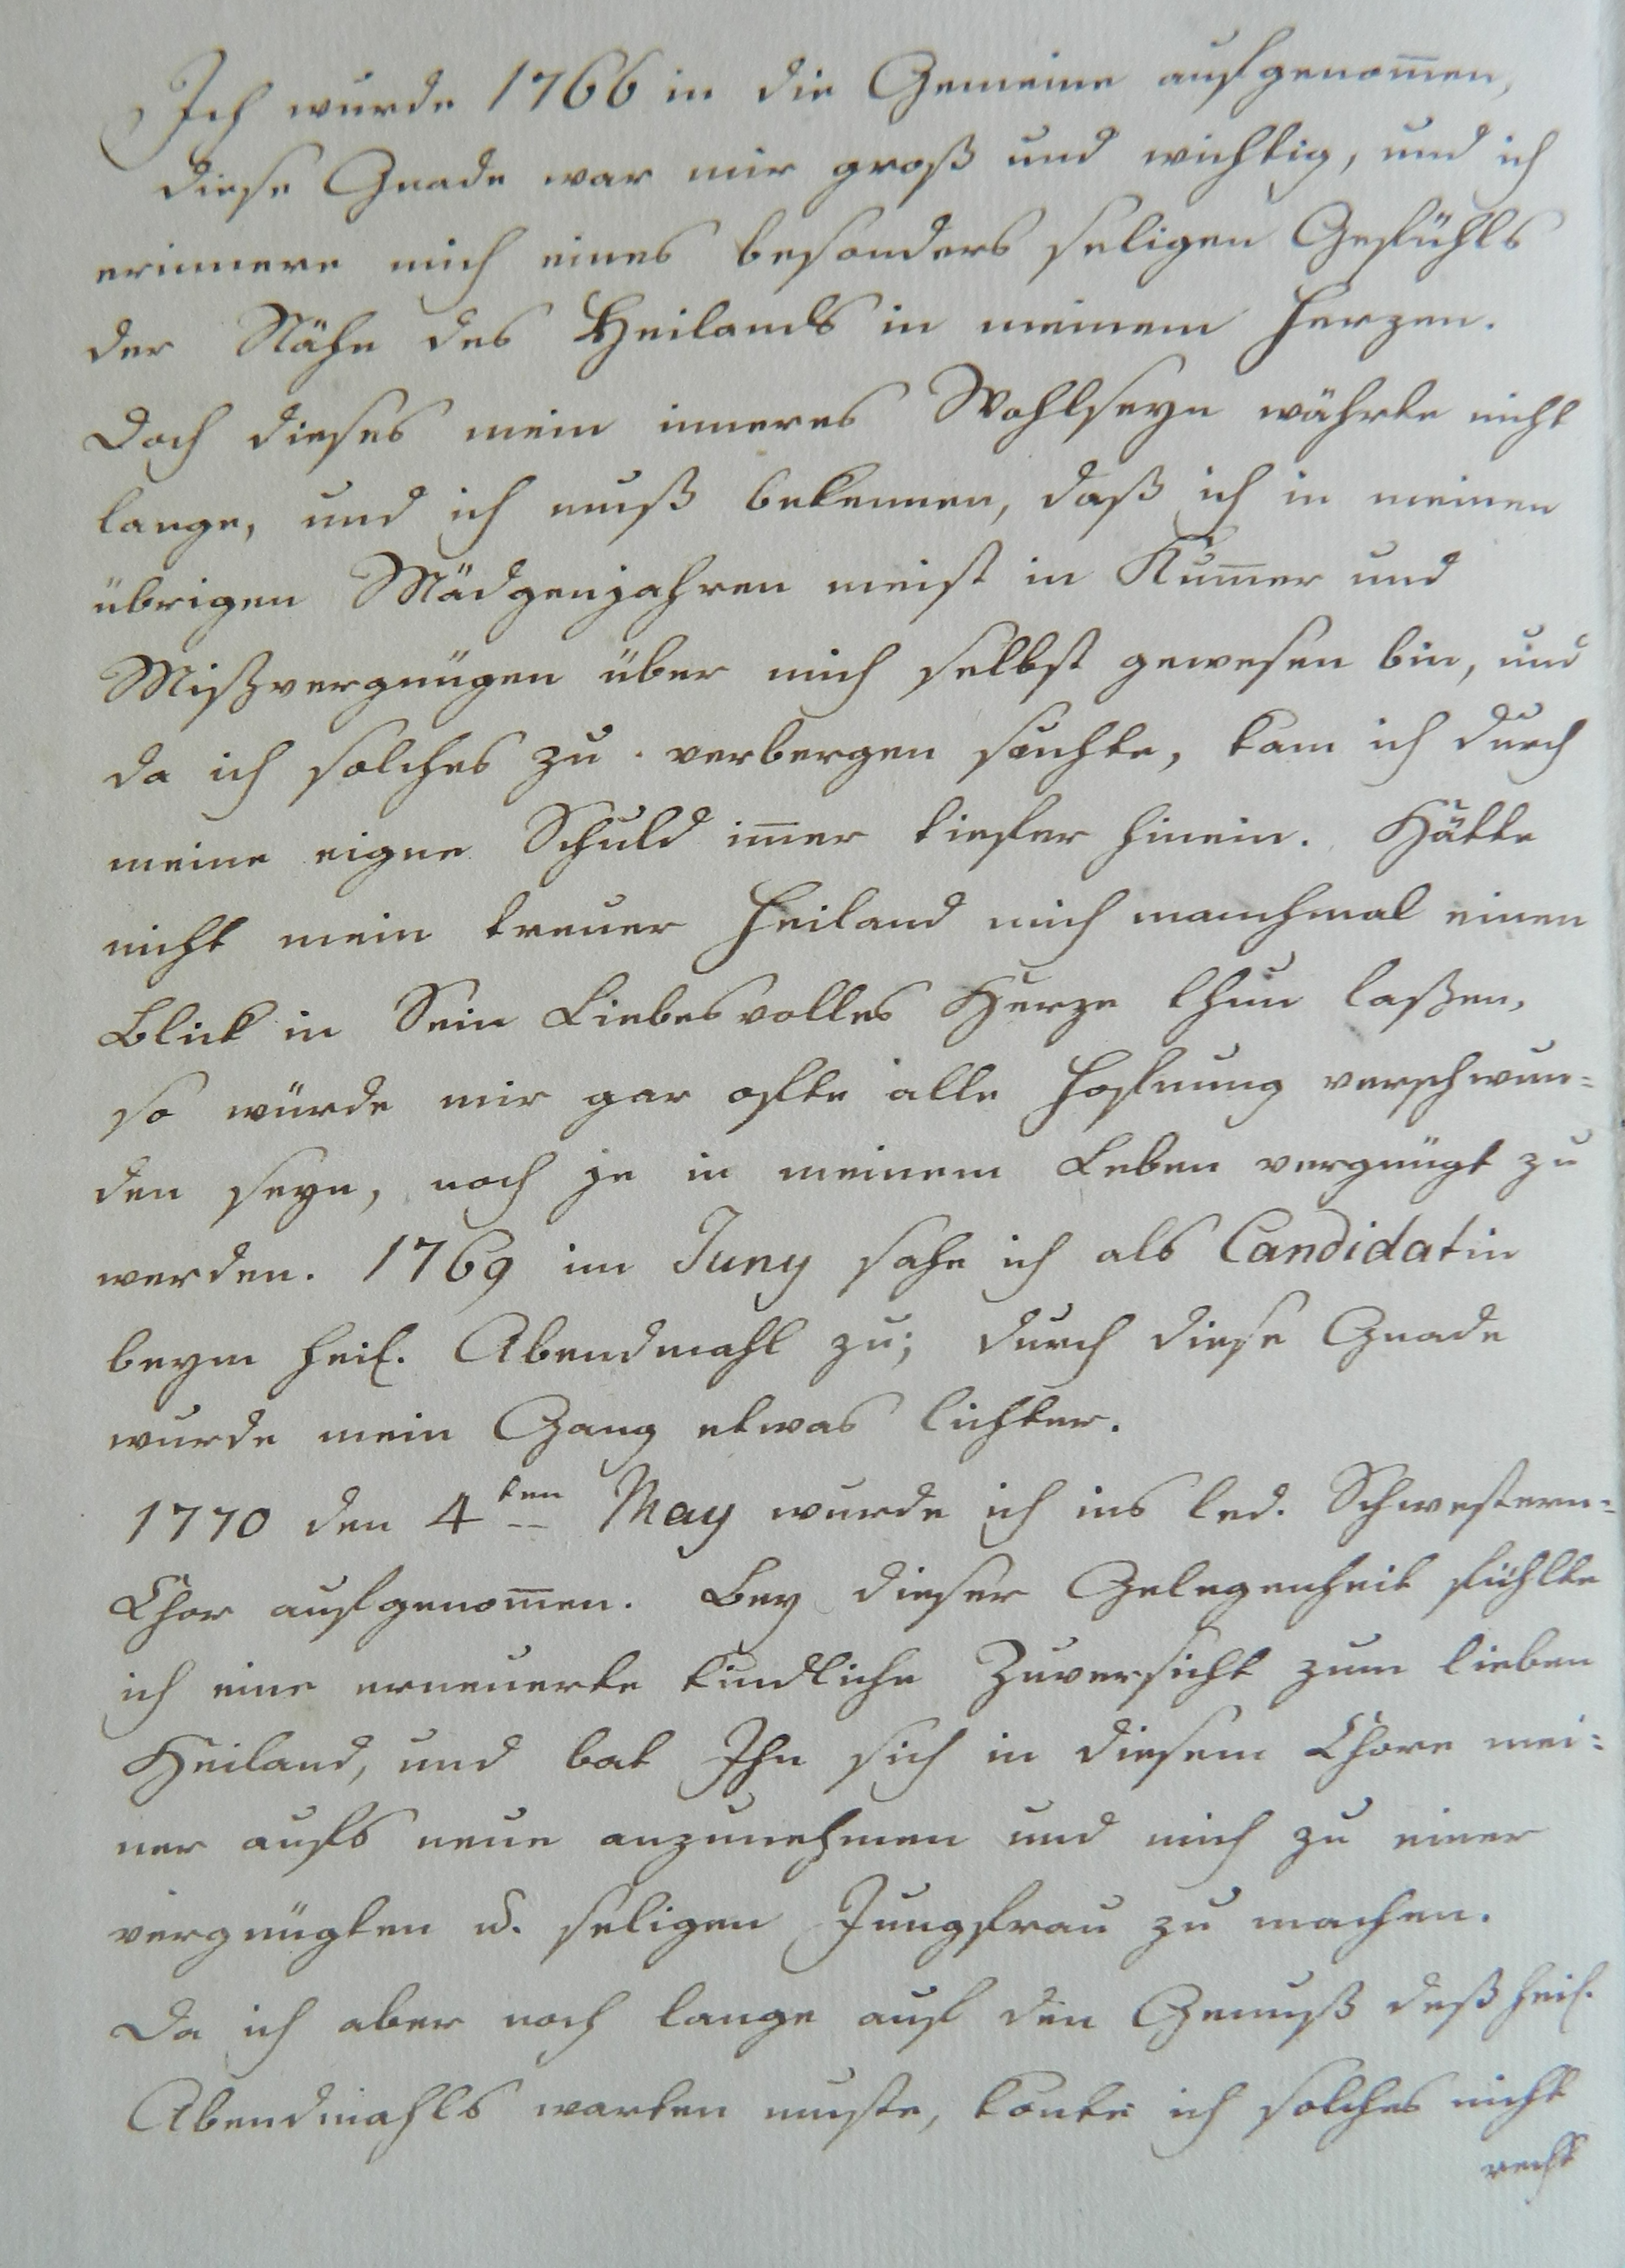 Ich wurde 1766 in die Gemeine aufgenom̅en,
diese Gnade war mir groß und wichtig, und ich
erinnere mich eines besonders seligen Gefühls
der Nähe des Heilands in meinem Herzen.
Doch dieses mein inneres Wohlseyn währte nicht
lange, und ich muß bekennen, daß ich in meinen
übrigen Mädgenjahren meist in Kum̅er und
Mißvergnügen über mich selbst gewesen bin, und
da ich solches zu verbergen suchte, kam ich durch
meine eigne Schuld im̅er tiefer hinein. Hätte
nicht mein treuer Heiland mich manchmal einen
Blick in Sein Liebesvolles Herze thun laßen,
so würde mir gar ofte alle Hofnung verschwun=
den seyn, noch je in meinem Leben vergnügt zu
werden. 1769 im Juny sahe ich als Candidatin
beym heil. Abendmahl zu; durch diese Gnade
wurde mein Gang etwas lichter.
1770 den 4ten May wurde ich ins led. Schwestern=
Chor aufgenom̅en. Bey dieser Gelegenheit fühlte
ich eine erneuerte kindliche Zuversicht zum lieben
Heiland, und bat Ihn sich in diesem Chore mei=
ner aufs neue anzunehmen und mich zu einer
vergnügten u. seligen Jungfrau zu machen.
Da ich aber noch lange auf den Genuß deß heil.
Abendmahls warten muste, konte ich solches nicht
recht